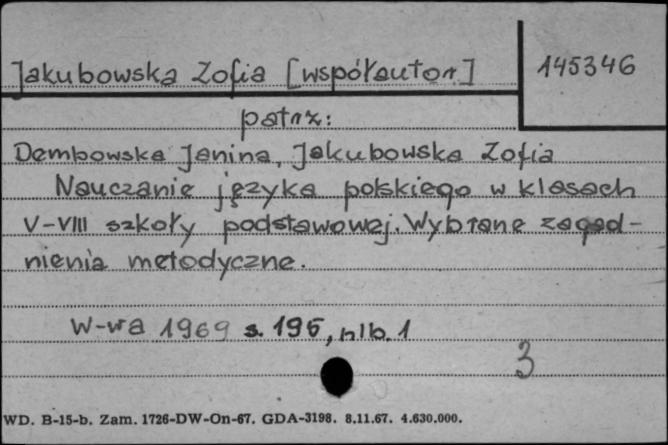 Jakubowska Zofia [współautor]
145346
patrz:
Dembowska Janina, Jakubowska Zofia
Nauczanie języka polskiego w klasach
V-VIII szkoły podstawowej. Wybrane zagad-
nienia metodyczne.
W-wa 1969 s. 195, nlb. 1
3
WD. B-15-b. Zam. 1726-DW-On-67. GDA-3198. 8.11.67. 4.630.000.